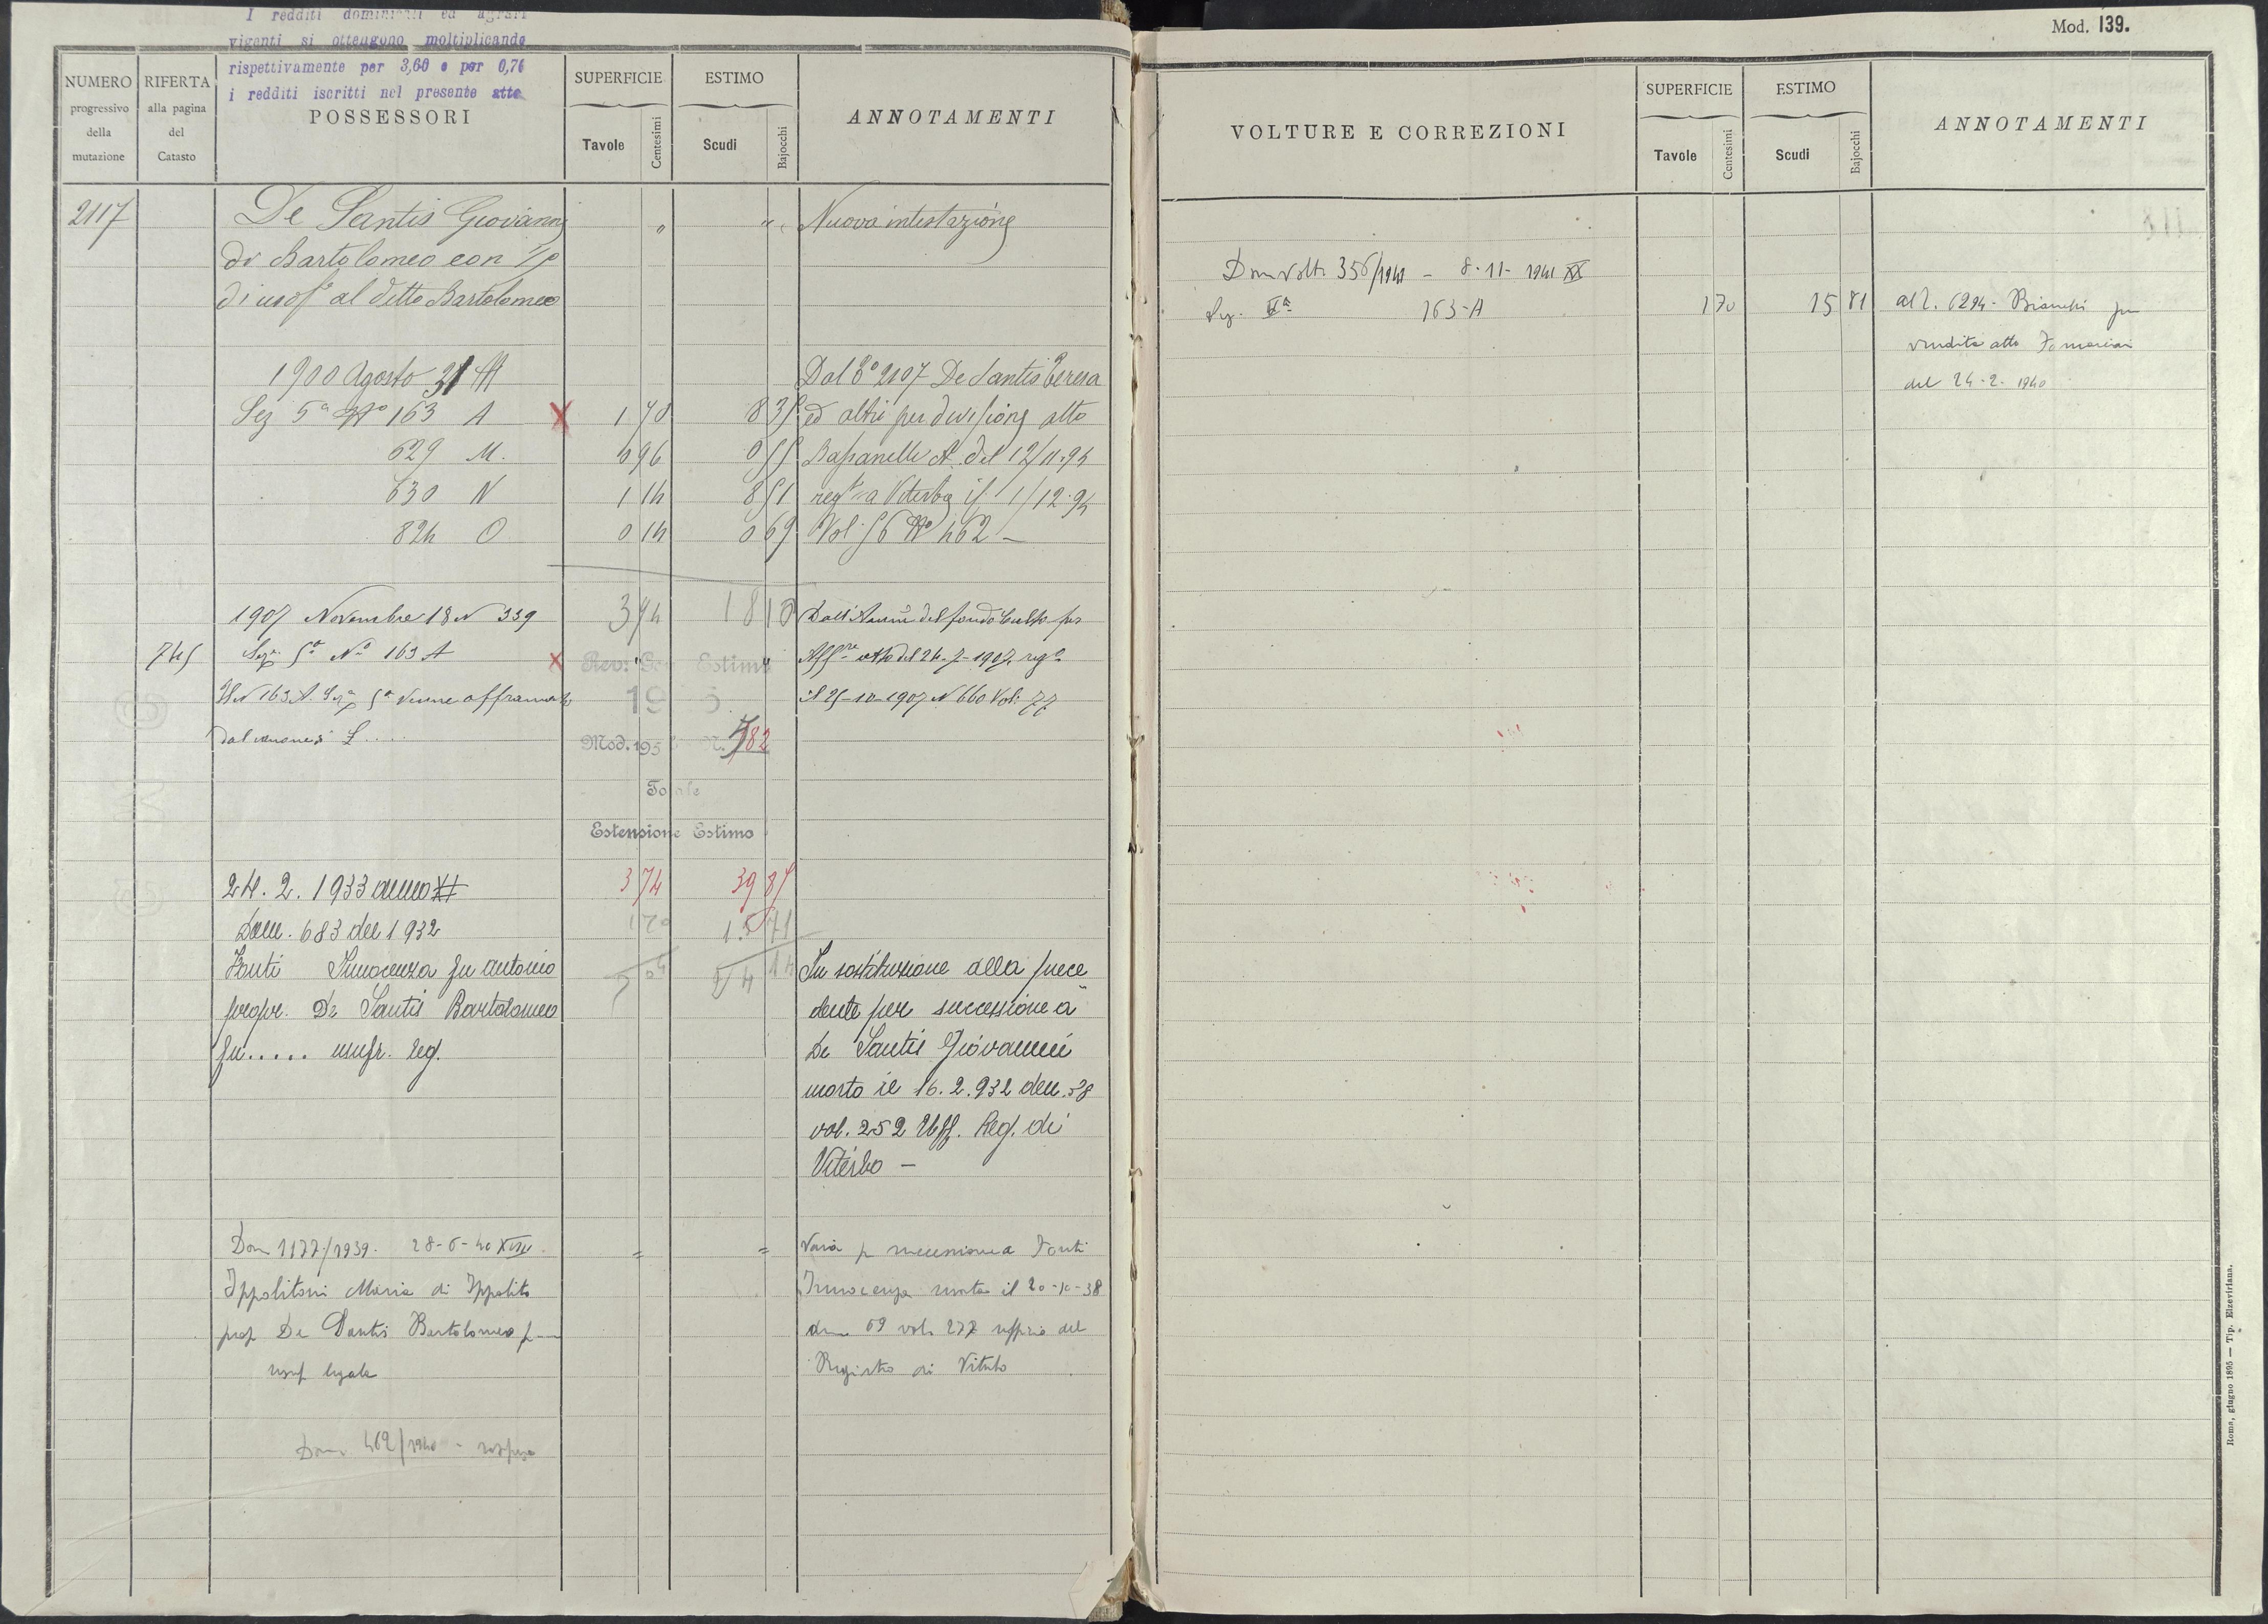 I redditi dominicali ed agrari
vigenti si ottengono moltiplicando
rispettivamente per 3,60 e per 0,76
i redditi iscritti nel presente atto
NUMERO progressivo della mutazione
RIFERTA alla pagina del Catasto
POSSESSORI
SUPERFICIE
Tavole Centesimi
ESTIMO
Scudi Bajocchi
ANNOTAMENTI
2117 De Santis Giovanni " " Nuova intestazione
di Bartolomeo con
di usof° al detto Bartolomeo
1900 Agosto 31 Dal 2107 De Santis Teresa
Sez 5a N° 163 A X 1 70 8 35 ed altri per divisione atto
629 M. 0 96 0 55 Bassanelli A. del 12/11.94
630 N 1 14 8 51 regto a Viterbo il 1/12.94
824 O 0 14 0 69 Vol 56 N° 462 –
3 94 18 10
1907 Novembre 18 N 339 Dall'Ammne del fondo Culto per
745 Sezne 5a No 163 A X Affne atto del 24-7-1907 rego
Il N 163 A. Seza 5a venne affrancato il 25-10-1907 N 660 Vol: 77
dal canone di L.....
Rev: Gen Estimi
19
Mod. 195 N. 782
Totale
Estensione Estimo
24. 2. 1933 anno XI 3 74 39 85
Dom. 683 del 1932 1 70 15 71
Fonti Innocenza fu Antonio 24 14 In sostituzione alla prece
propr. De Santis Bartolomeo dente per successione a
fu..... usufr. leg. De Santis Giovanni
morto il 16.2.932 den. 38
vol. 252 Uff. Reg. di
Viterbo –
Dom 1177/1939. 28-6-40 XVIII. = = Varia p successione a Fonti
Ippolitoni Maria di Ippolito Innocenza morta il 20-10-38
prop De Santis Bartolomeo f— den 69 vol. 277 ufficio del
usuf legale Registro di Viterbo
Dom. 462/1940 - sospesa
Mod. 139.
VOLTURE E CORREZIONI
SUPERFICIE
Tavole Centesimi
ESTIMO
Scudi Bajocchi
ANNOTAMENTI
Dom Volt. 356/1941 – 8-11-1941 XX
Sez. Va 163-A 1 70 15 81 all. 6294- Bianchi per
vendita atto
del 24-2-1940
Roma, giugno 1895 — Tip. Elzeviriana.